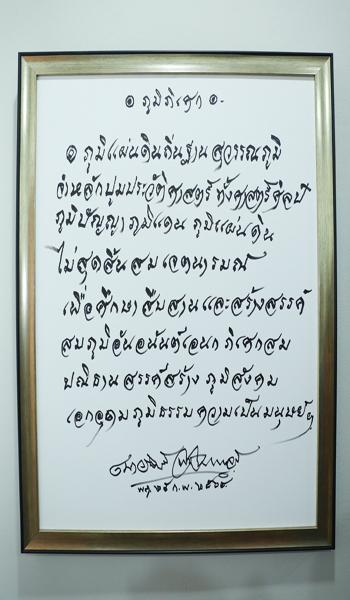 ๏ ภูมิภิเศก ๏
๏ ภูมิแผ่นดินถิ่นฐานสุวรรณภูมิ
จำหลักปูมประวัติศาสตร์ ทั้งศาสตร์ศิลป์
ภูมิปัญญา ภูมิแดน ภูมิแผ่นดิน
ไม่สุดสิ้นสมเจตนารมณ์
เพื่อศึกษา สืบสาน และสร้างสรรค์
สบภูมิอันอนันต์เอนก ภิเศกสม
ปณิธาน สรรค์สร้าง ภูมิสังคม
เอกอุดม ภูมิธรรม ความเป็นมนุษย์ฯ
พฤ. ๒๔ ก.พ. ๒๕๖๕